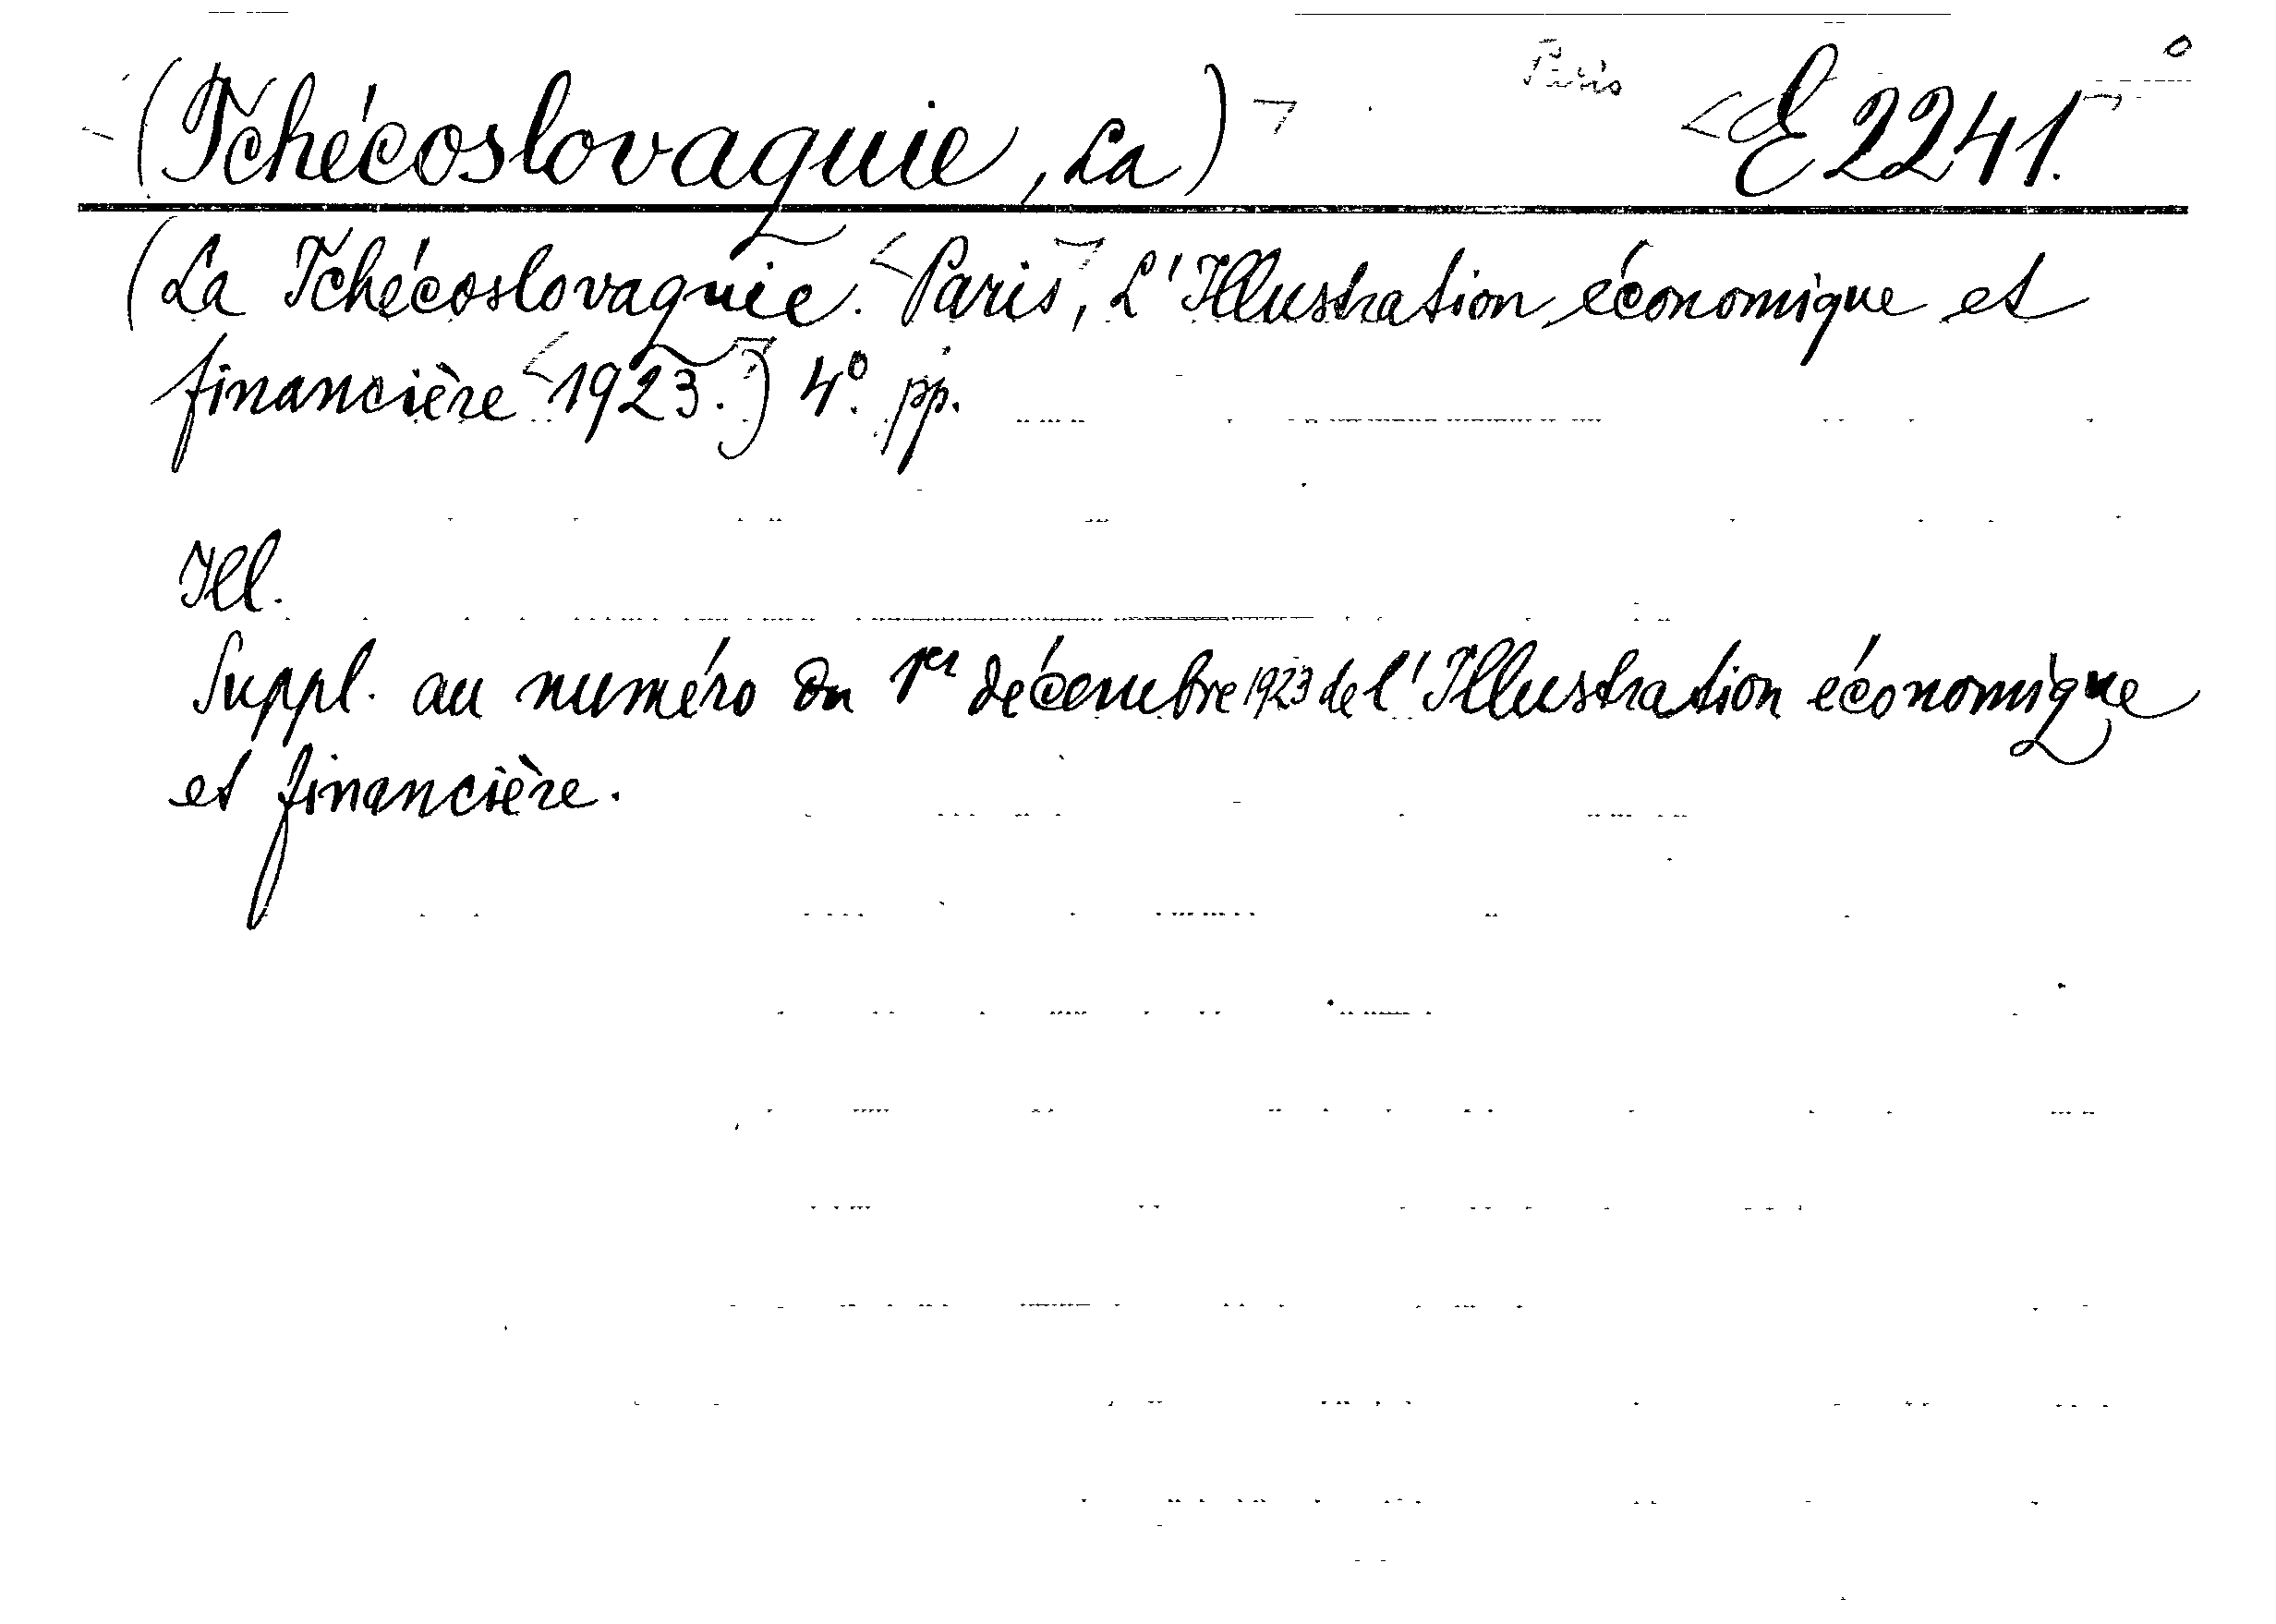 (Tchécoslovaquie, La) Paris E 2241.
(La Tchécoslovaquie. Paris, L'Illustration économique et
financière 1923.) 4° pp.
Ill.
Suppl. au numéro du 1er décembre 1923 de l'Illustration économique
et financière.